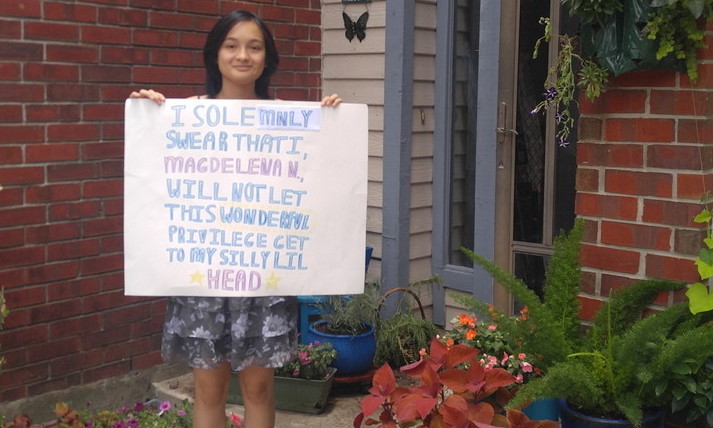 I SOLEMNLY
SWEAR THAT I,
MAGDELENA N.,
WILL NOT LET
THIS WONDERFUL
PRIVILEGE GET
TO MY SILLY LIL
HEAD